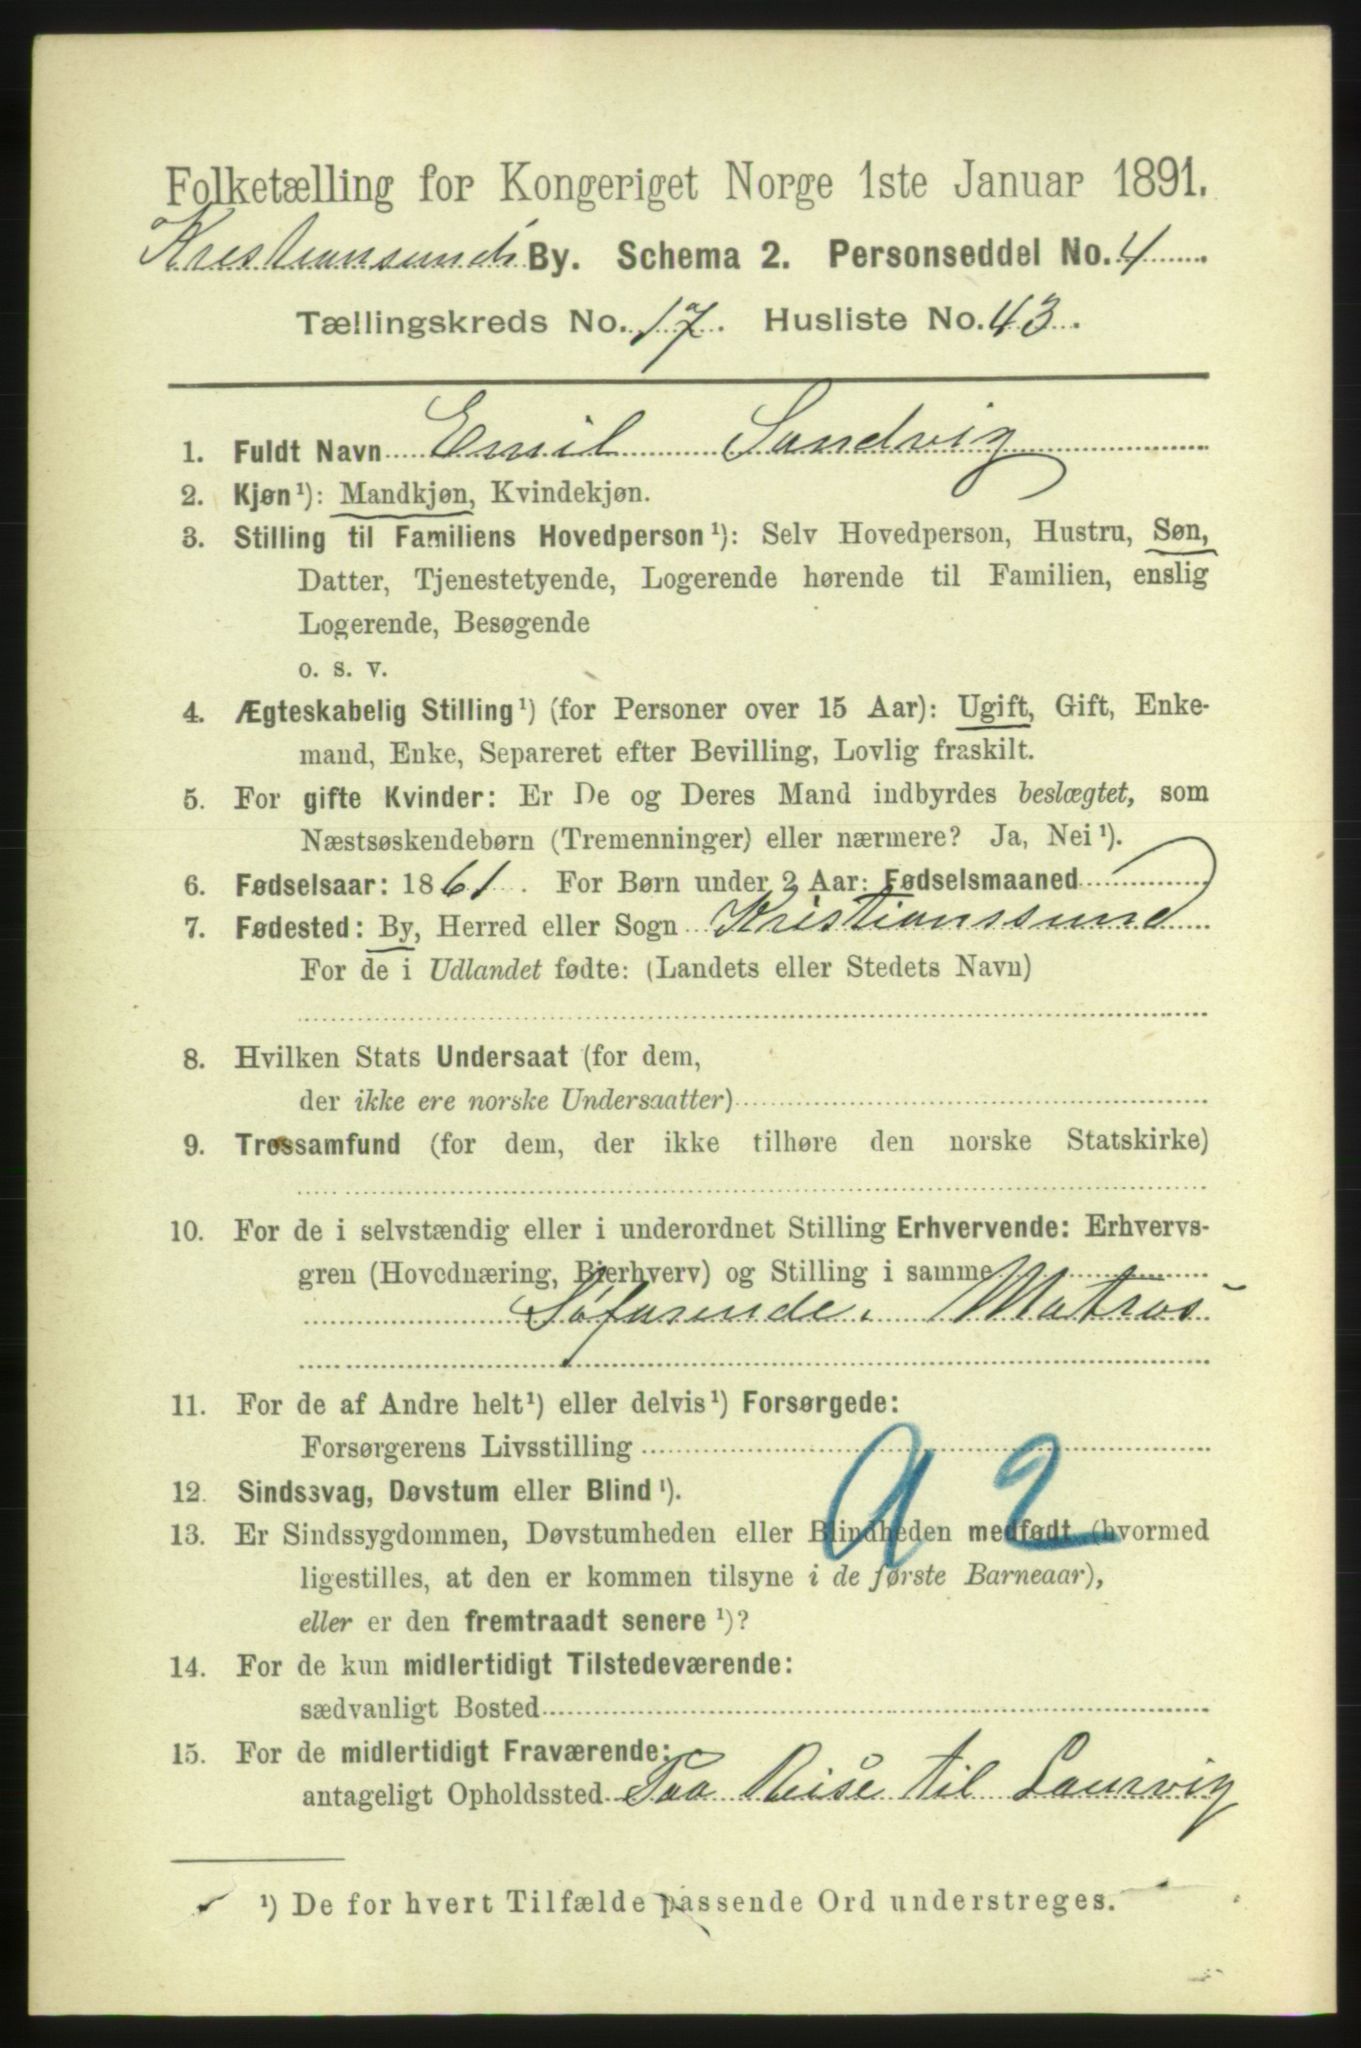 Folketælling for Kongeriget Norge 1ste Januar 1891.
Kristiansunds By. Schema 2. Personseddel No. 4
Tællingskreds No. 17. Husliste No. 43.
1. Fuldt Navn Emil Sandvig
2. Kjøn¹): Mandkjøn, Kvindekjøn.
3. Stilling til Familiens Hovedperson¹): Selv Hovedperson, Hustru, Søn,
Datter, Tjenestetyende, Logerende hørende til Familien, enslig
Logerende, Besøgende
o. s. v.
4. Ægteskabelig Stilling¹) (for Personer over 15 Aar): Ugift, Gift, Enke-
mand, Enke, Separeret efter Bevilling, Lovlig fraskilt.
5. For gifte Kvinder: Er De og Deres Mand indbyrdes beslægtet, som
Næstsøskendebørn (Tremenninger) eller nærmere? Ja, Nei¹).
6. Fødselsaar: 1861. For Børn under 2 Aar: Fødselsmaaned
7. Fødested: By, Herred eller Sogn Kristianssund
For de i Udlandet fødte: (Landets eller Stedets Navn)
8. Hvilken Stats Undersaat (for dem,
der ikke ere norske Undersaatter)
9. Trossamfund (for dem, der ikke tilhøre den norske Statskirke)
10. For de i selvstændig eller i underordnet Stilling Erhvervende: Erhvervs-
gren (Hovednæring, Bierhverv) og Stilling i samme
Søfarende. Matros
11. For de af Andre helt¹) eller delvis¹) Forsørgede:
Forsørgerens Livsstilling
12. Sindssvag, Døvstum eller Blind¹).
a 2
13. Er Sindssygdommen, Døvstumheden eller Blindheden medfødt (hvormed
ligestilles, at den er kommen tilsyne i de første Barneaar),
eller er den fremtraadt senere¹)?
14. For de kun midlertidigt Tilstedeværende:
sædvanligt Bosted
15. For de midlertidigt Fraværende:
antageligt Opholdssted Paa Reise til Laurvig
¹) De for hvert Tilfælde passende Ord understreges.